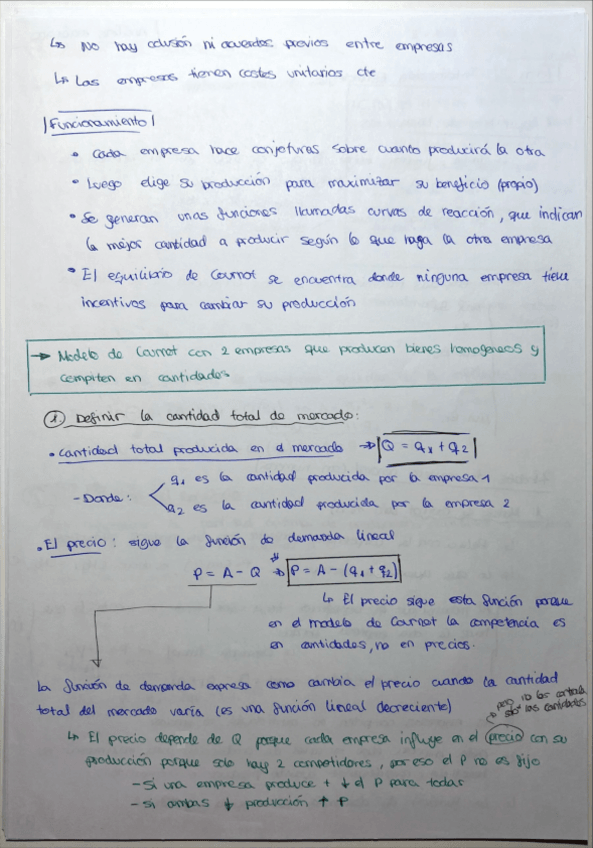 ↳ No hay colusión ni acuerdos previos entre empresas
↳ Las empresas tienen costes unitarios cte
|Funcionamiento|
• Cada empresa hace conjeturas sobre cuanto producirá la otra
• Luego elige su producción para maximizar su beneficio (propio)
• Se generan unas funciones llamadas curvas de reacción, que indican
la mejor cantidad a producir según lo que haga la otra empresa
• El equilibrio de Cournot se encuentra donde ninguna empresa tiene
incentivos para cambiar su producción
→ Modelo de Cournot con 2 empresas que producen bienes homogeneos y
compiten en cantidades
① Definir la cantidad total de mercado:
• Cantidad total producida en el mercado → |Q = q1 + q2|
- Donde: q1 es la cantidad producida por la empresa 1
q2 es la cantidad producida por la empresa 2
• El precio: sigue la función de demanda lineal
P = A - Q → P = A - (q1 + q2)
↳ El precio sigue esta función porque
en el modelo de Cournot la competencia es
en cantidades, no en precios.
La función de demanda expresa como cambia el precio cuando la cantidad
total del mercado varía (es una función lineal decreciente)
pero no los controla
solo las cantidades
↳ El precio depende de Q porque cada empresa influye en el precio con su
producción porque solo hay 2 competidores, por eso el P no es fijo
- Si una empresa produce + ↓ el P para todas
- si ambas ↓ producción ↑ P